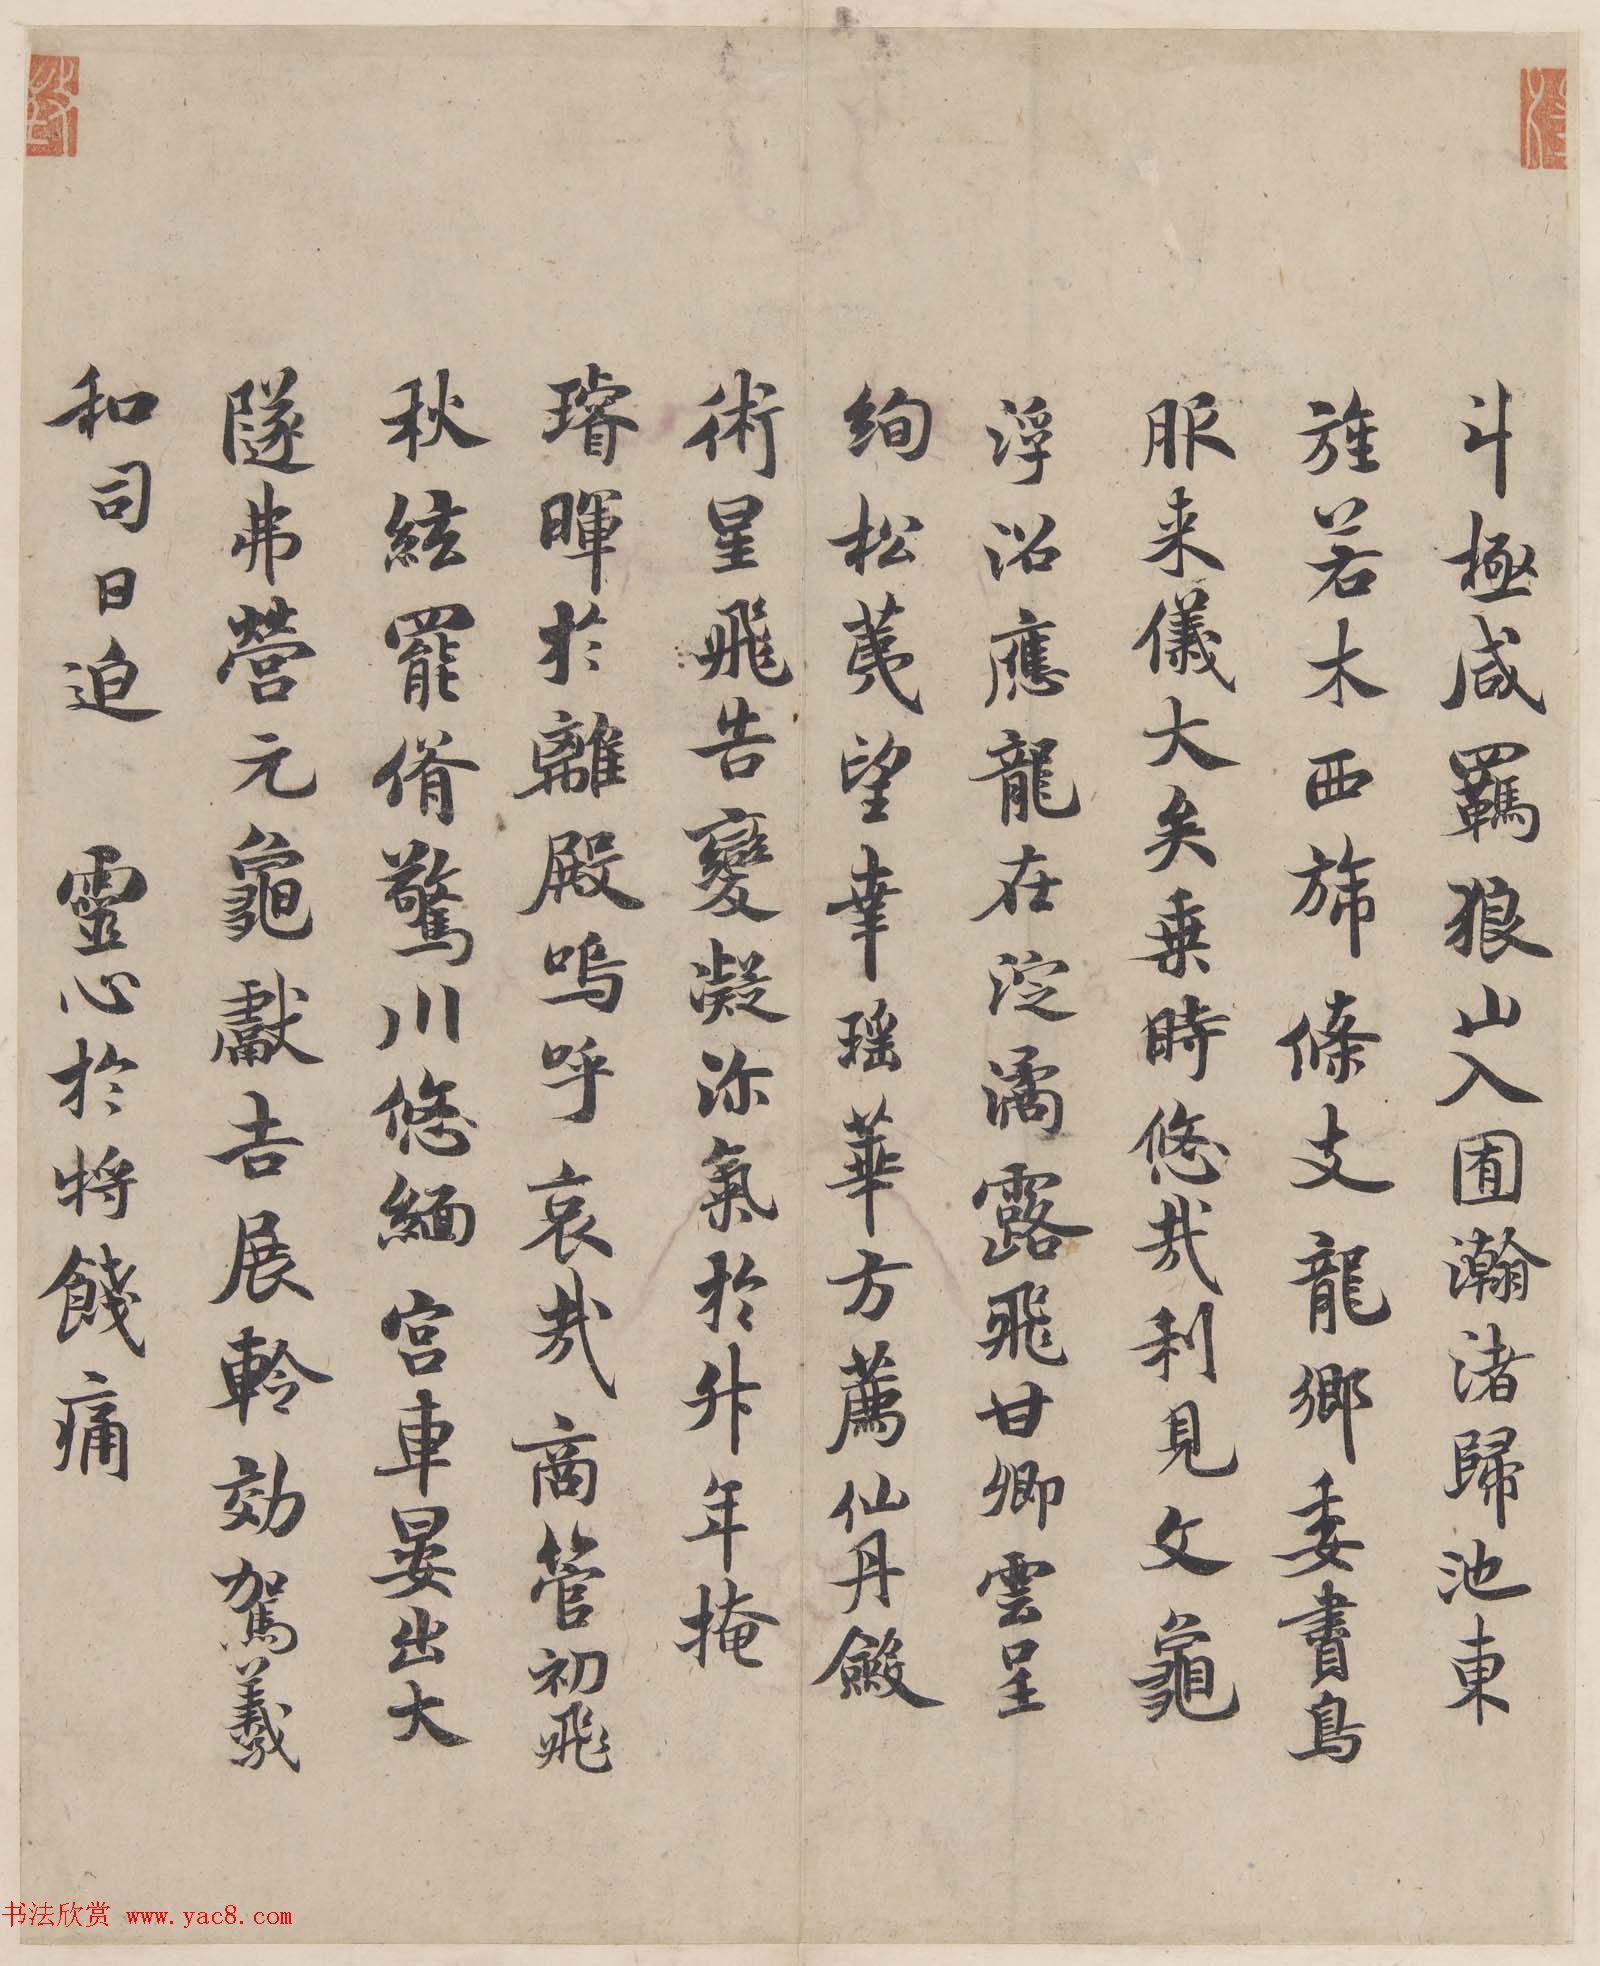 斗極咸羈狼山入囿瀚渚歸池東
旌若木西旆條支龍鄉委書鳥
服来儀大矣乗時悠哉利見文龜
浮沼應龍在淀潏露飛甘卿雲呈
絢松荑望幸瑶華方薦仙丹斂
術星飛告變凝沴氣於升年掩
璿暉於離殿嗚呼哀哉商管初飛
秋絃罷脩驚川悠緬宮車晏出大
隧弗營元龜獻吉展軨効駕羲
和司日迫 靈心於將餞痛
书法欣赏 www.yac8.com